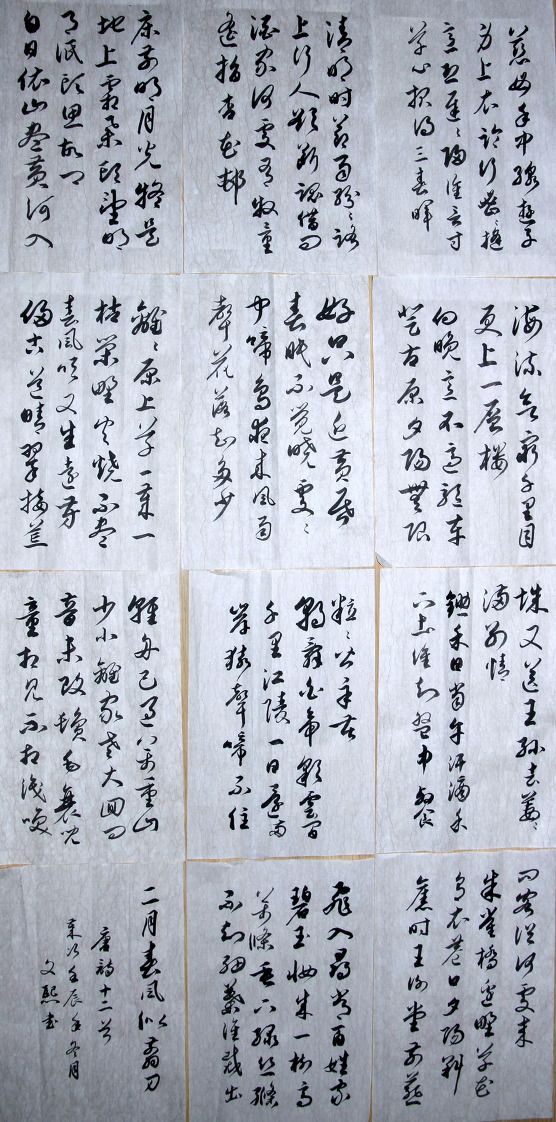 慈母手中線遊子
身上衣臨行密密縫
意恐遲々歸誰言寸
草心報得三春暉
清明時節雨紛々路
上行人欲斷魂借問
酒家何處有牧童
遙指杏花邨
床前明月光疑是
地上霜舉頭望明
月低頭思故鄉
白日依山盡黃河入
海流欲窮千里目
更上一層樓
向晚意不適驅車
登古原夕陽無限
好只是近黃昏
春眠不覺曉處々
聞啼鳥夜來風雨
聲花落知多少
離々原上草一歲一
枯榮野火燒不盡
春風吹又生遠芳
侵古道晴翠接荒
城又送王孫去萋々
滿別情
鋤禾日當午汗滴禾
下土誰知盤中餐
粒々皆辛苦
朝辭白帝彩雲間
千里江陵一日還兩
岸猿聲啼不住
輕舟已過萬重山
少小離家老大回鄉
音未改鬢毛衰兒
童相見不相識笑
問客從何處來
朱雀橋邊野草花
烏衣巷口夕陽斜
舊時王謝堂前燕
飛入尋常百姓家
碧玉妝成一樹高
萬條垂下綠絲絛
不知細葉誰裁出
二月春風似剪刀
唐詩十二首
歲次壬辰年冬月
文熙書